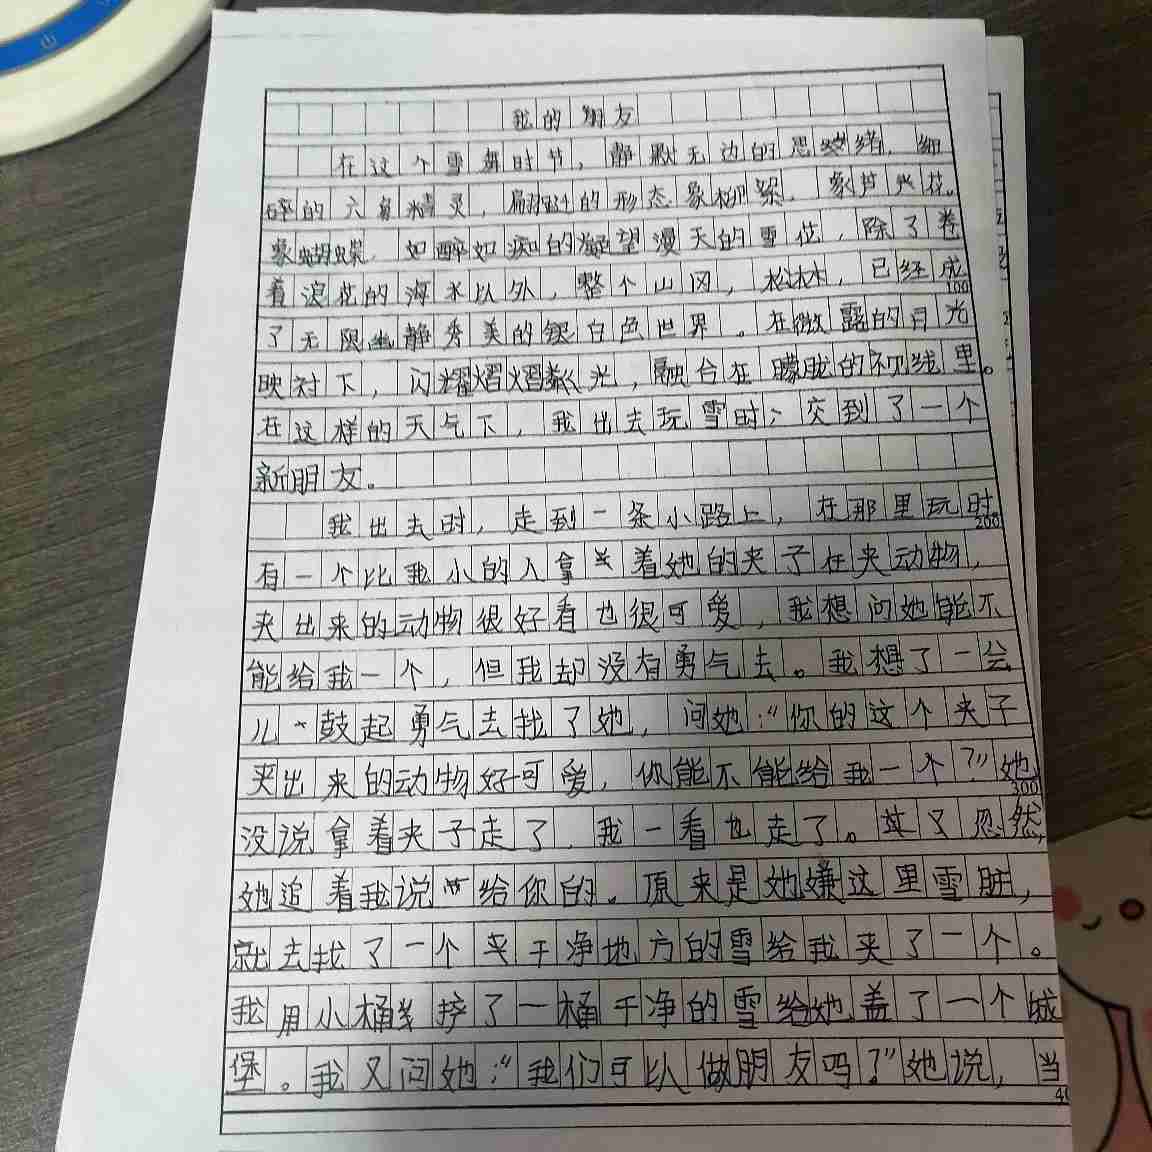 我的朋友
在这个雪舞时节，静默无边的思绪，细
碎的六角精灵，翩跹的形态.象柳絮，象芦苇花。
象蝴蝶.如醉如痴的凝望漫天的雪花，除了卷
着浪花的海水以外，整个山冈，松林，已经成
100
了无限幽静秀美的银白色世界。在微露的月光
映衬下，闪耀熠熠光，融合在朦胧的视线里。
在这样的天气下，我出去玩雪时；交到了一个
新朋友。
我出去时，走到一条小路上，在那里玩时
200
有一个比我小的人拿着她的夹子在夹动物，
夹出来的动物很好看也很可爱，我想问她能不
能给我一个，但我却没有勇气去。我想了一会
儿、鼓起勇气去找了她，问她：“你的这个夹子
夹出来的动物好可爱，你能不能给我一个？”她
300
没说拿着夹子走了，我一看也走了。其又忽然，
她追着我说“给你的。原来是她嫌这里雪脏，
就去找了一个夹干净地方的雪给我夹了一个。
我用小桶挖了一桶干净的雪给她盖了一个城
堡。我又问她：“我们可以做朋友吗？”她说，当